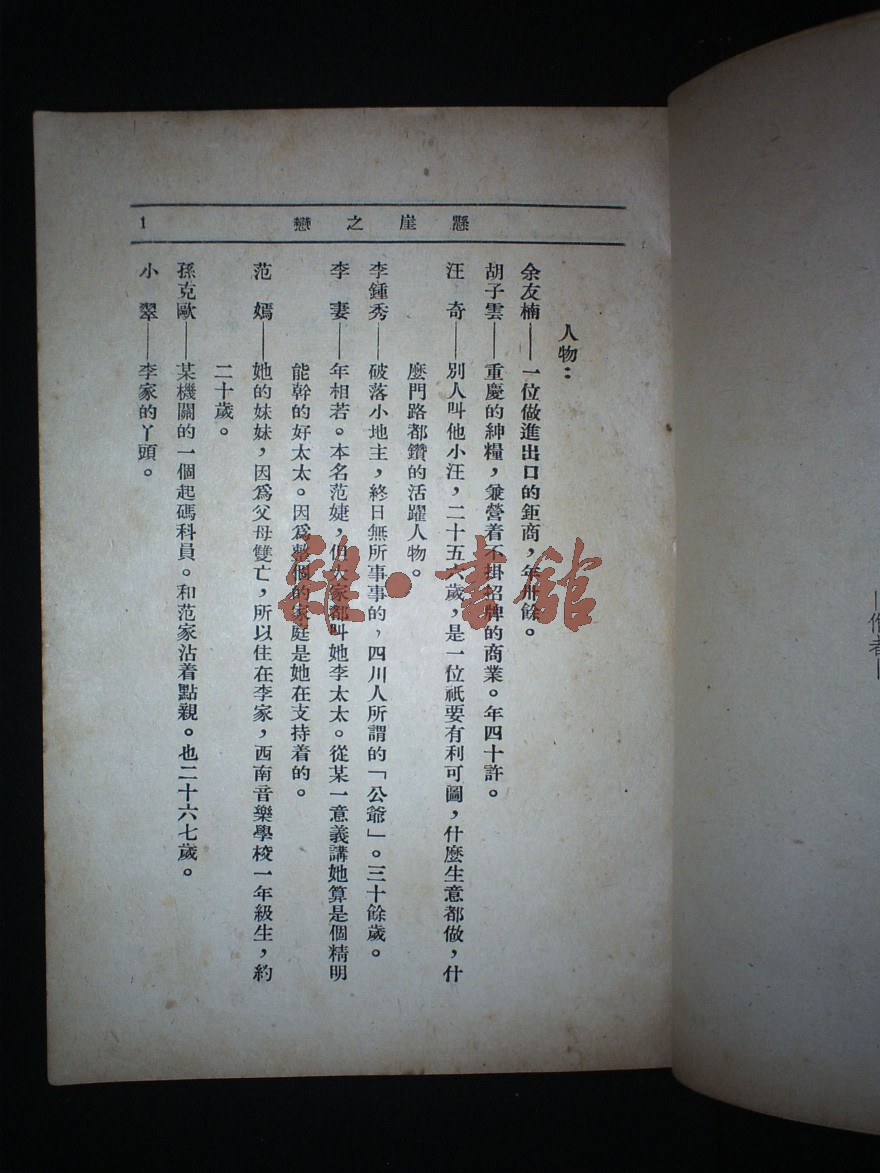 —作者—
懸崖之戀
1
人物：
余友楠——一位做進出口的鉅商，年卅餘。
胡子雲——重慶的紳糧，兼營着不掛招牌的商業。年四十許。
汪　奇——別人叫他小汪，二十五六歲，是一位祇要有利可圖，什麼生意都做，什
麼門路都鑽的活躍人物。
李鍾秀——破落小地主，終日無所事事的，四川人所謂的「公爺」。三十餘歲。
李　妻——年相若。本名范婕，但大家都叫她李太太。從某一意義講她算是個精明
能幹的好太太。因爲整個的家庭是她在支持着的。
范　嫣——她的妹妹，因爲父母雙亡，所以住在李家，西南音樂學校一年級生，約
二十歲。
孫克歐——某機關的一個起碼科員。和范家沾着點親。也二十六七歲。
小　翠——李家的丫頭。
雜·書館